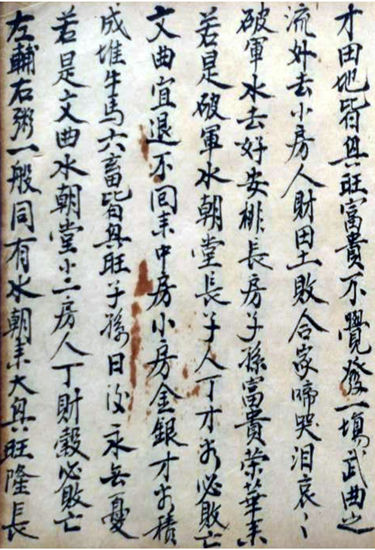 才田地皆興旺富貴不覺發一塲武曲之
流好去小房人財田土敗合家啼哭泪哀〻
破軍水去好安排長房子孫富貴荣華来
若是破軍水朝堂長子人丁才谷必敗亡
文曲宜退不回来中房小房金銀才谷積
成堆牛馬六畜皆興旺子孫日後永無憂
若是文曲水朝堂小二房人丁財穀必敗亡
左輔右弼一般同有水朝来大興旺隆長